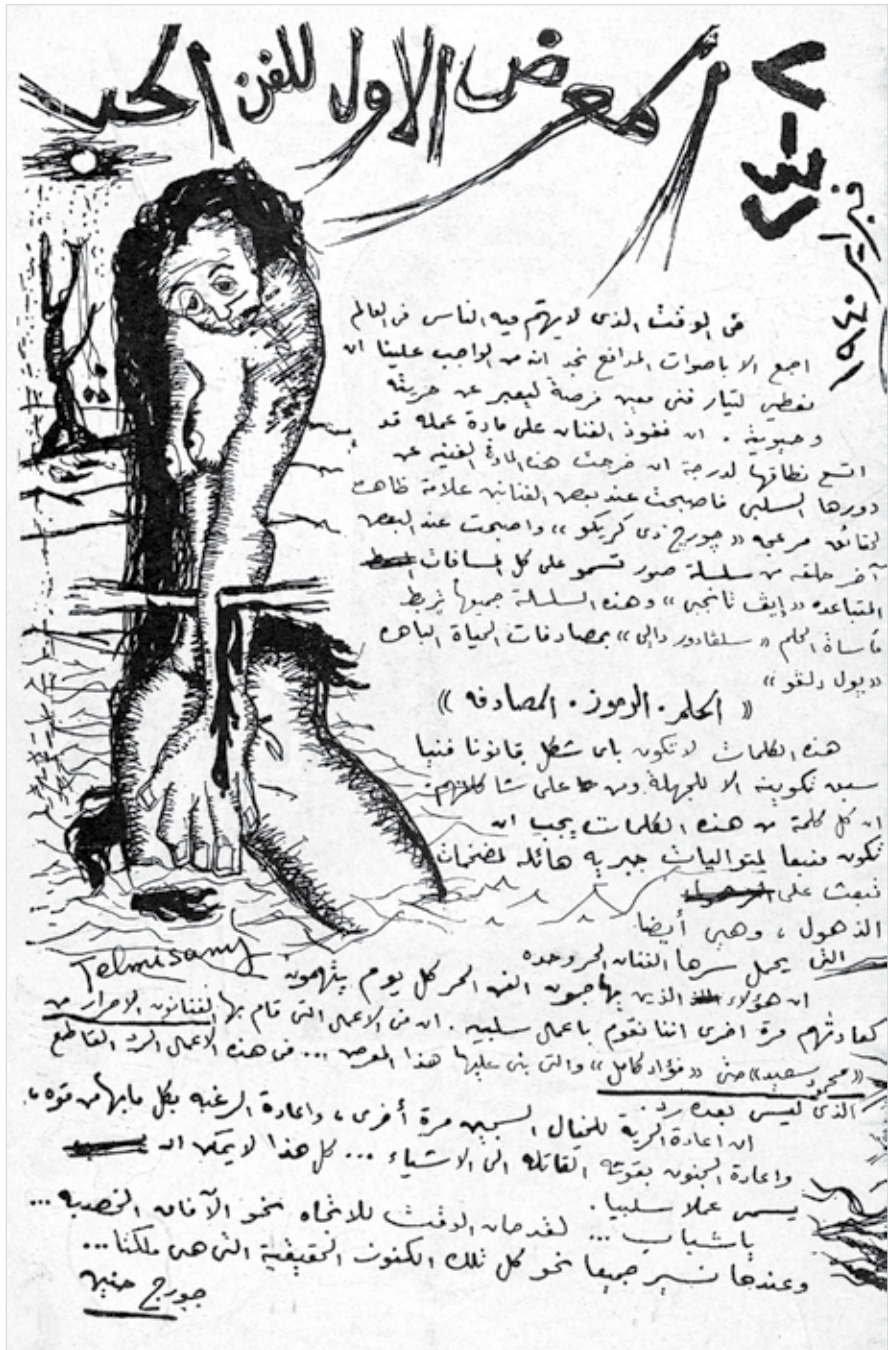 المعرض الاول للفن الحر
٨-٢٤
فبراير ١٩٤٠
فى الوقت الذى لا يهتم فيه الناس فى العالم
اجمع الا باصوات المدافع نجد انه من الواجب علينا ان
نعطى لتيار فنى معين فرصة ليعبر عن حريته
وحيويته . ان نفوذ الفنان على مادة عمله قد
اتسع نطاقها لدرجة ان خرجت هذه المادة الفنيه عن
دورها السلبى فاصبحت عند بعض الفنانين علامة ظاهره
لحقائق مرعبه «چورچ دى كريكو» واصبحت عند البعض
آخر حلقه من سلسلة صور تسمو على كل المسافات
المتباعده «إيف تانجى» وهذه السلسلة جميعها تربط
مأساة الحلم «سلفادور دالى» بمصادفات الحياة الباهره
«بول دلفو»
« الحلم . الرموز . المصادفه »
هذه الكلمات لا تكون باى شكل قانونا فنيا
سبق تكوينه الا للجهلة ومن على شاكلتهم.
ان كل كلمة من هذه الكلمات يجب ان
تكون منبعا لمتواليات جبريه هائله لمضخات
تبعث على
الذهول ، وهى أيضا
التى يحمل سرها الفنان الحر وحده
Telmisany
ان هؤلاء الذين يهاجمون الفن الحر كل يوم يتهموننا
كعادتهم مرة اخرى اننا نقوم باعمال سلبيه . ان فى الاعمال التى قام بها الفنانون الاحرار من
«محمود سعيد» حتى «فؤاد كامل» والتى بنى عليها هذا المعرض ... فى هذه الاعمال الرد القاطع
الذى ليس بعده رد.
ان اعادة الحرية للخيال السجين مرة أخرى، واعادة الرغبه بكل ما بها من قوه،
واعادة الجنون بقوته القاتله الى الاشياء ... كل هذا لا يمكن ان
يسمى عملا سلبيا.
يا شباب ... لقد حان الوقت للاتجاه نحو الآفاق الخصبه ...
وعندها نسير جميعا نحو كل تلك الكنوز الحقيقية التى هى ملكنا...
جورج حنين